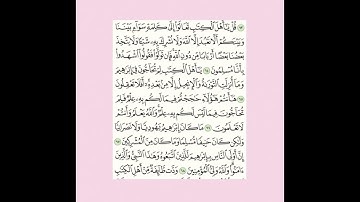 ٦٣ قُلْ يَٰٓأَهْلَ ٱلْكِتَٰبِ تَعَالَوْا۟ إِلَىٰ كَلِمَةٍ سَوَآءٍۭ بَيْنَنَا
وَبَيْنَكُمْ أَلَّا نَعْبُدَ إِلَّا ٱللَّهَ وَلَا نُشْرِكَ بِهِۦ شَيْـًٔا وَلَا يَتَّخِذَ
بَعْضُنَا بَعْضًا أَرْبَابًا مِّن دُونِ ٱللَّهِ فَإِن تَوَلَّوْا۟ فَقُولُوا۟ ٱشْهَدُوا۟
بِأَنَّا مُسْلِمُونَ ٦٤ يَٰٓأَهْلَ ٱلْكِتَٰبِ لِمَ تُحَآجُّونَ فِىٓ إِبْرَٰهِيمَ
وَمَآ أُنزِلَتِ ٱلتَّوْرَىٰةُ وَٱلْإِنجِيلُ إِلَّا مِنۢ بَعْدِهِۦٓ أَفَلَا تَعْقِلُونَ
٦٥ هَٰٓأَنتُمْ هَٰٓؤُلَآءِ حَٰجَجْتُمْ فِيمَا لَكُم بِهِۦ عِلْمٌ فَلِمَ
تُحَآجُّونَ فِيمَا لَيْسَ لَكُم بِهِۦ عِلْمٌ وَٱللَّهُ يَعْلَمُ وَأَنتُمْ
لَا تَعْلَمُونَ ٦٦ مَا كَانَ إِبْرَٰهِيمُ يَهُودِيًّا وَلَا نَصْرَانِيًّا
وَلَٰكِن كَانَ حَنِيفًا مُّسْلِمًا وَمَا كَانَ مِنَ ٱلْمُشْرِكِينَ ٦٧
إِنَّ أَوْلَى ٱلنَّاسِ بِإِبْرَٰهِيمَ لَلَّذِينَ ٱتَّبَعُوهُ وَهَٰذَا ٱلنَّبِىُّ وَٱلَّذِينَ
ءَامَنُوا۟ وَٱللَّهُ وَلِىُّ ٱلْمُؤْمِنِينَ ٦٨ وَدَّت طَّآئِفَةٌ مِّنْ أَهْلِ ٱلْكِتَٰبِ